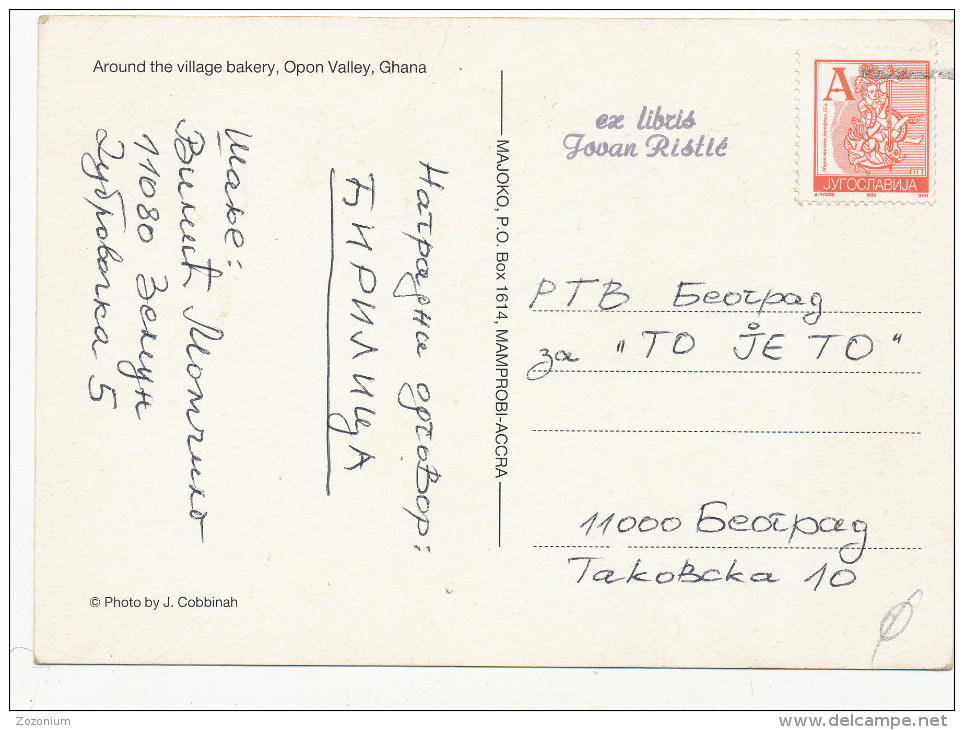 Around the village bakery, Opon Valley, Ghana
Шаље:
Вилић Момчило
11080 Земун
Дубровачка 5
Наградни одговор:
ЋИРИЛИЦА
© Photo by J. Cobbinah
MAJOKO, P.O. Box 1614, MAMPROBI-ACCRA
ex libris
Jovan Ristić
А
ЈУГОСЛАВИЈА
РТВ Београд
за "ТО ЈЕ ТО"
11000 Београд
Таковска 10
Zozonium
www.delcampe.net